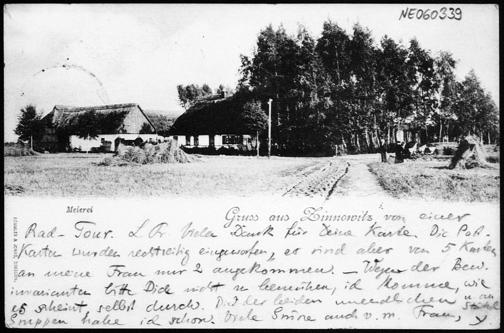 NE060339
Meierei
Gruss aus Zinnowitz, von einer
Rad-Tour. L. Fr. Viele Dank für Deine Karte. Die Post-
Karten wurden rechtzeitig eingeworfen, es sind aber von 5 Karten
an meine Frau nur 2 angekommen. — Wegen der Bew.
invarianten bitte Dich nicht zu bemühen, ich komme, wie
es scheint, selbst durch. Die der beiden unendlichen
Gruppen habe ich schon. Viele Grüsse auch v. m. Frau,